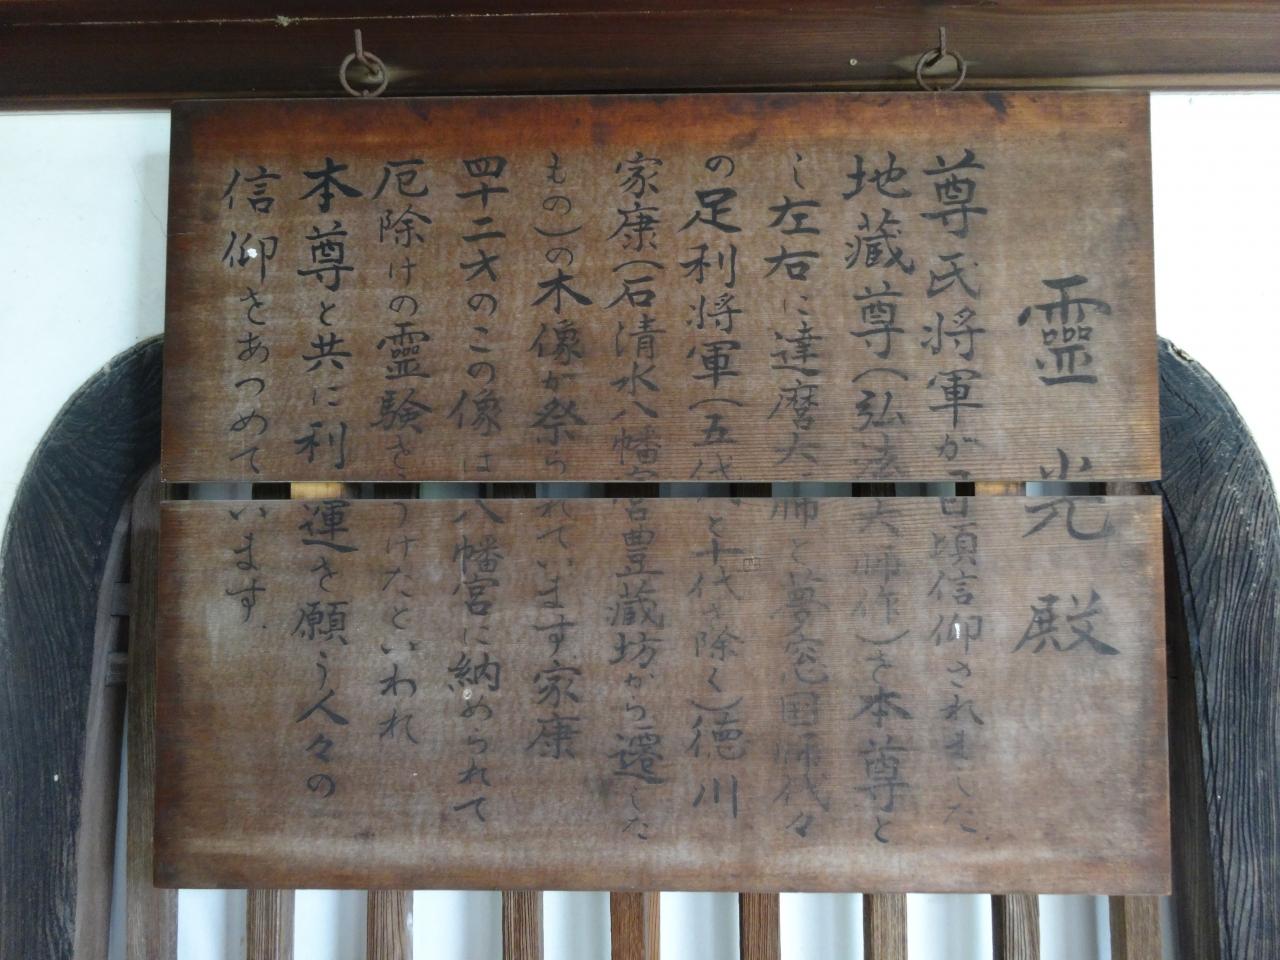 靈光殿
尊氏将軍が日頃信仰されました
地蔵尊(弘法大師作)を本尊と
し左右に達磨大師と夢窓国師代々
の足利将軍(五代と十代を除く)徳川
家康(石清水八幡宮豊蔵坊から遷した
もの)の木像が祭られています家康
四十二才のこの像は八幡宮に納められて
厄除けの靈験をうけたといわれ
本尊と共に利運を願う人々の
信仰をあつめています.